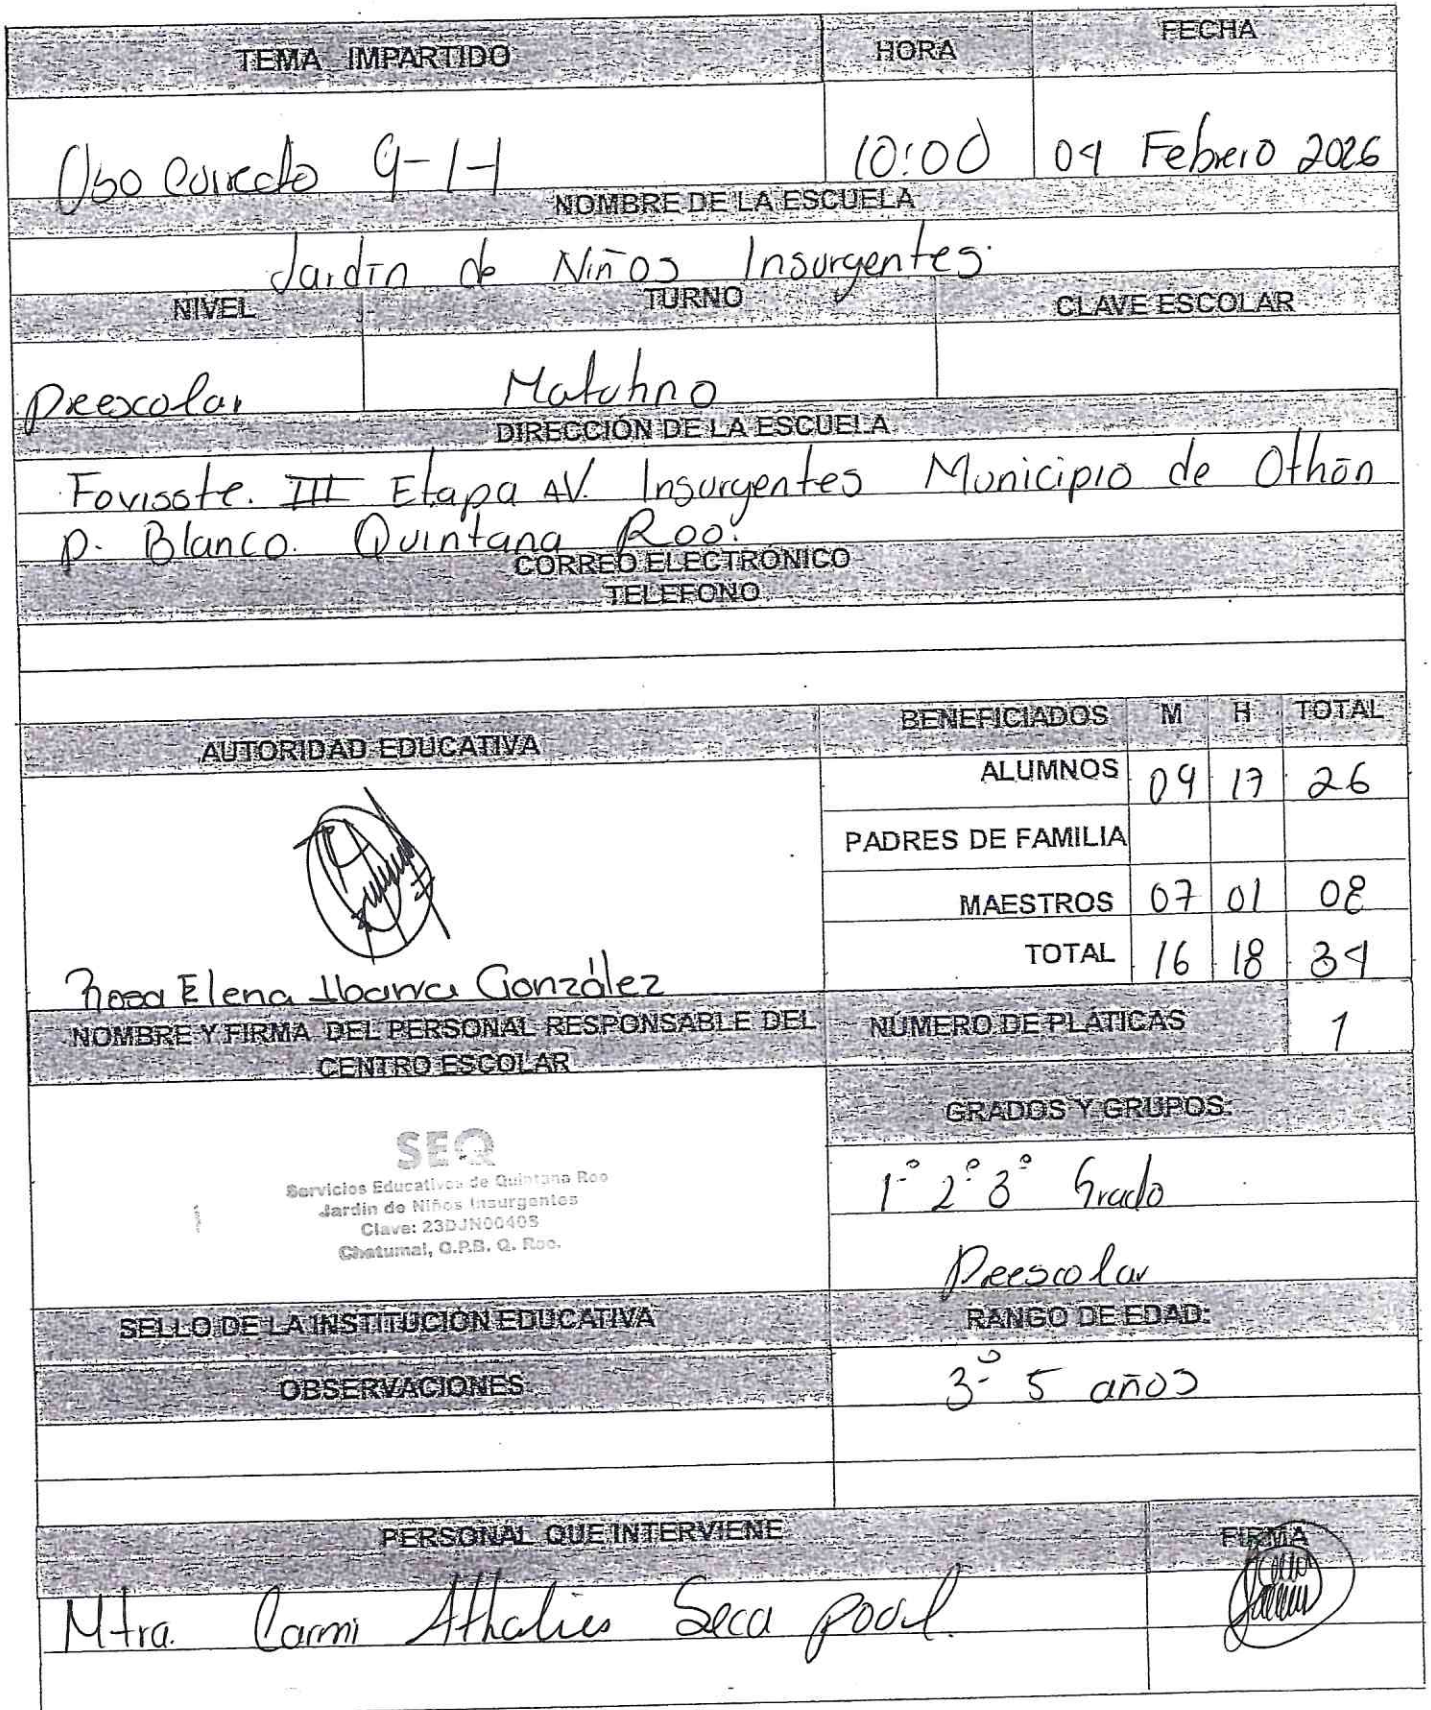 TEMA IMPARTIDO HORA FECHA
Uso correcto 9-1-1 10:00 04 Febrero 2026
NOMBRE DE LA ESCUELA
Jardín de Niños Insurgentes.
NIVEL TURNO CLAVE ESCOLAR
Preescolar Matutino
DIRECCIÓN DE LA ESCUELA
Fovissste. III Etapa AV. Insurgentes Municipio de Othón
P. Blanco. Quintana Roo.
CORREO ELECTRÓNICO
TELEFONO
AUTORIDAD EDUCATIVA BENEFICIADOS M H TOTAL
ALUMNOS 09 17 26
PADRES DE FAMILIA
MAESTROS 07 01 08
TOTAL 16 18 34
Rosa Elena Ibarra González
NOMBRE Y FIRMA DEL PERSONAL RESPONSABLE DEL CENTRO ESCOLAR
NÚMERO DE PLÁTICAS 1
GRADOS Y GRUPOS:
SEQ
Servicios Educativos de Quintana Roo
Jardín de Niños Insurgentes
Clave: 23DJN0040S
Chetumal, O.P.B. Q. Roo.
1º 2º 3º Grado
Preescolar
SELLO DE LA INSTITUCIÓN EDUCATIVA RANGO DE EDAD:
OBSERVACIONES 3- 5 años
PERSONAL QUE INTERVIENE FIRMA
Mtra. Carmi Athalies Seca Pool.